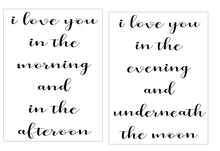 i love you
in the
morning
and
in the
afteroon
i love you
in the
evening
and
underneath
the moon